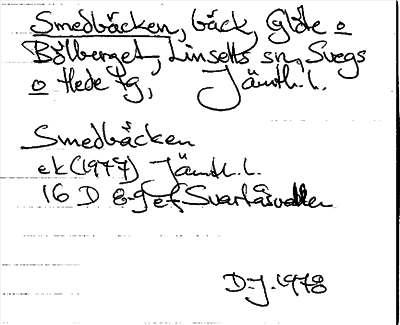 Smedbäcken, bäck, Glöte o
Bölberget, Linsells sn, Svegs
o Hede tg, Jämtl. l.
Smedbäcken
ek (1977) Jämtl. l.
16 D 8-9 e f Svartåsvallen
D-J. 1978